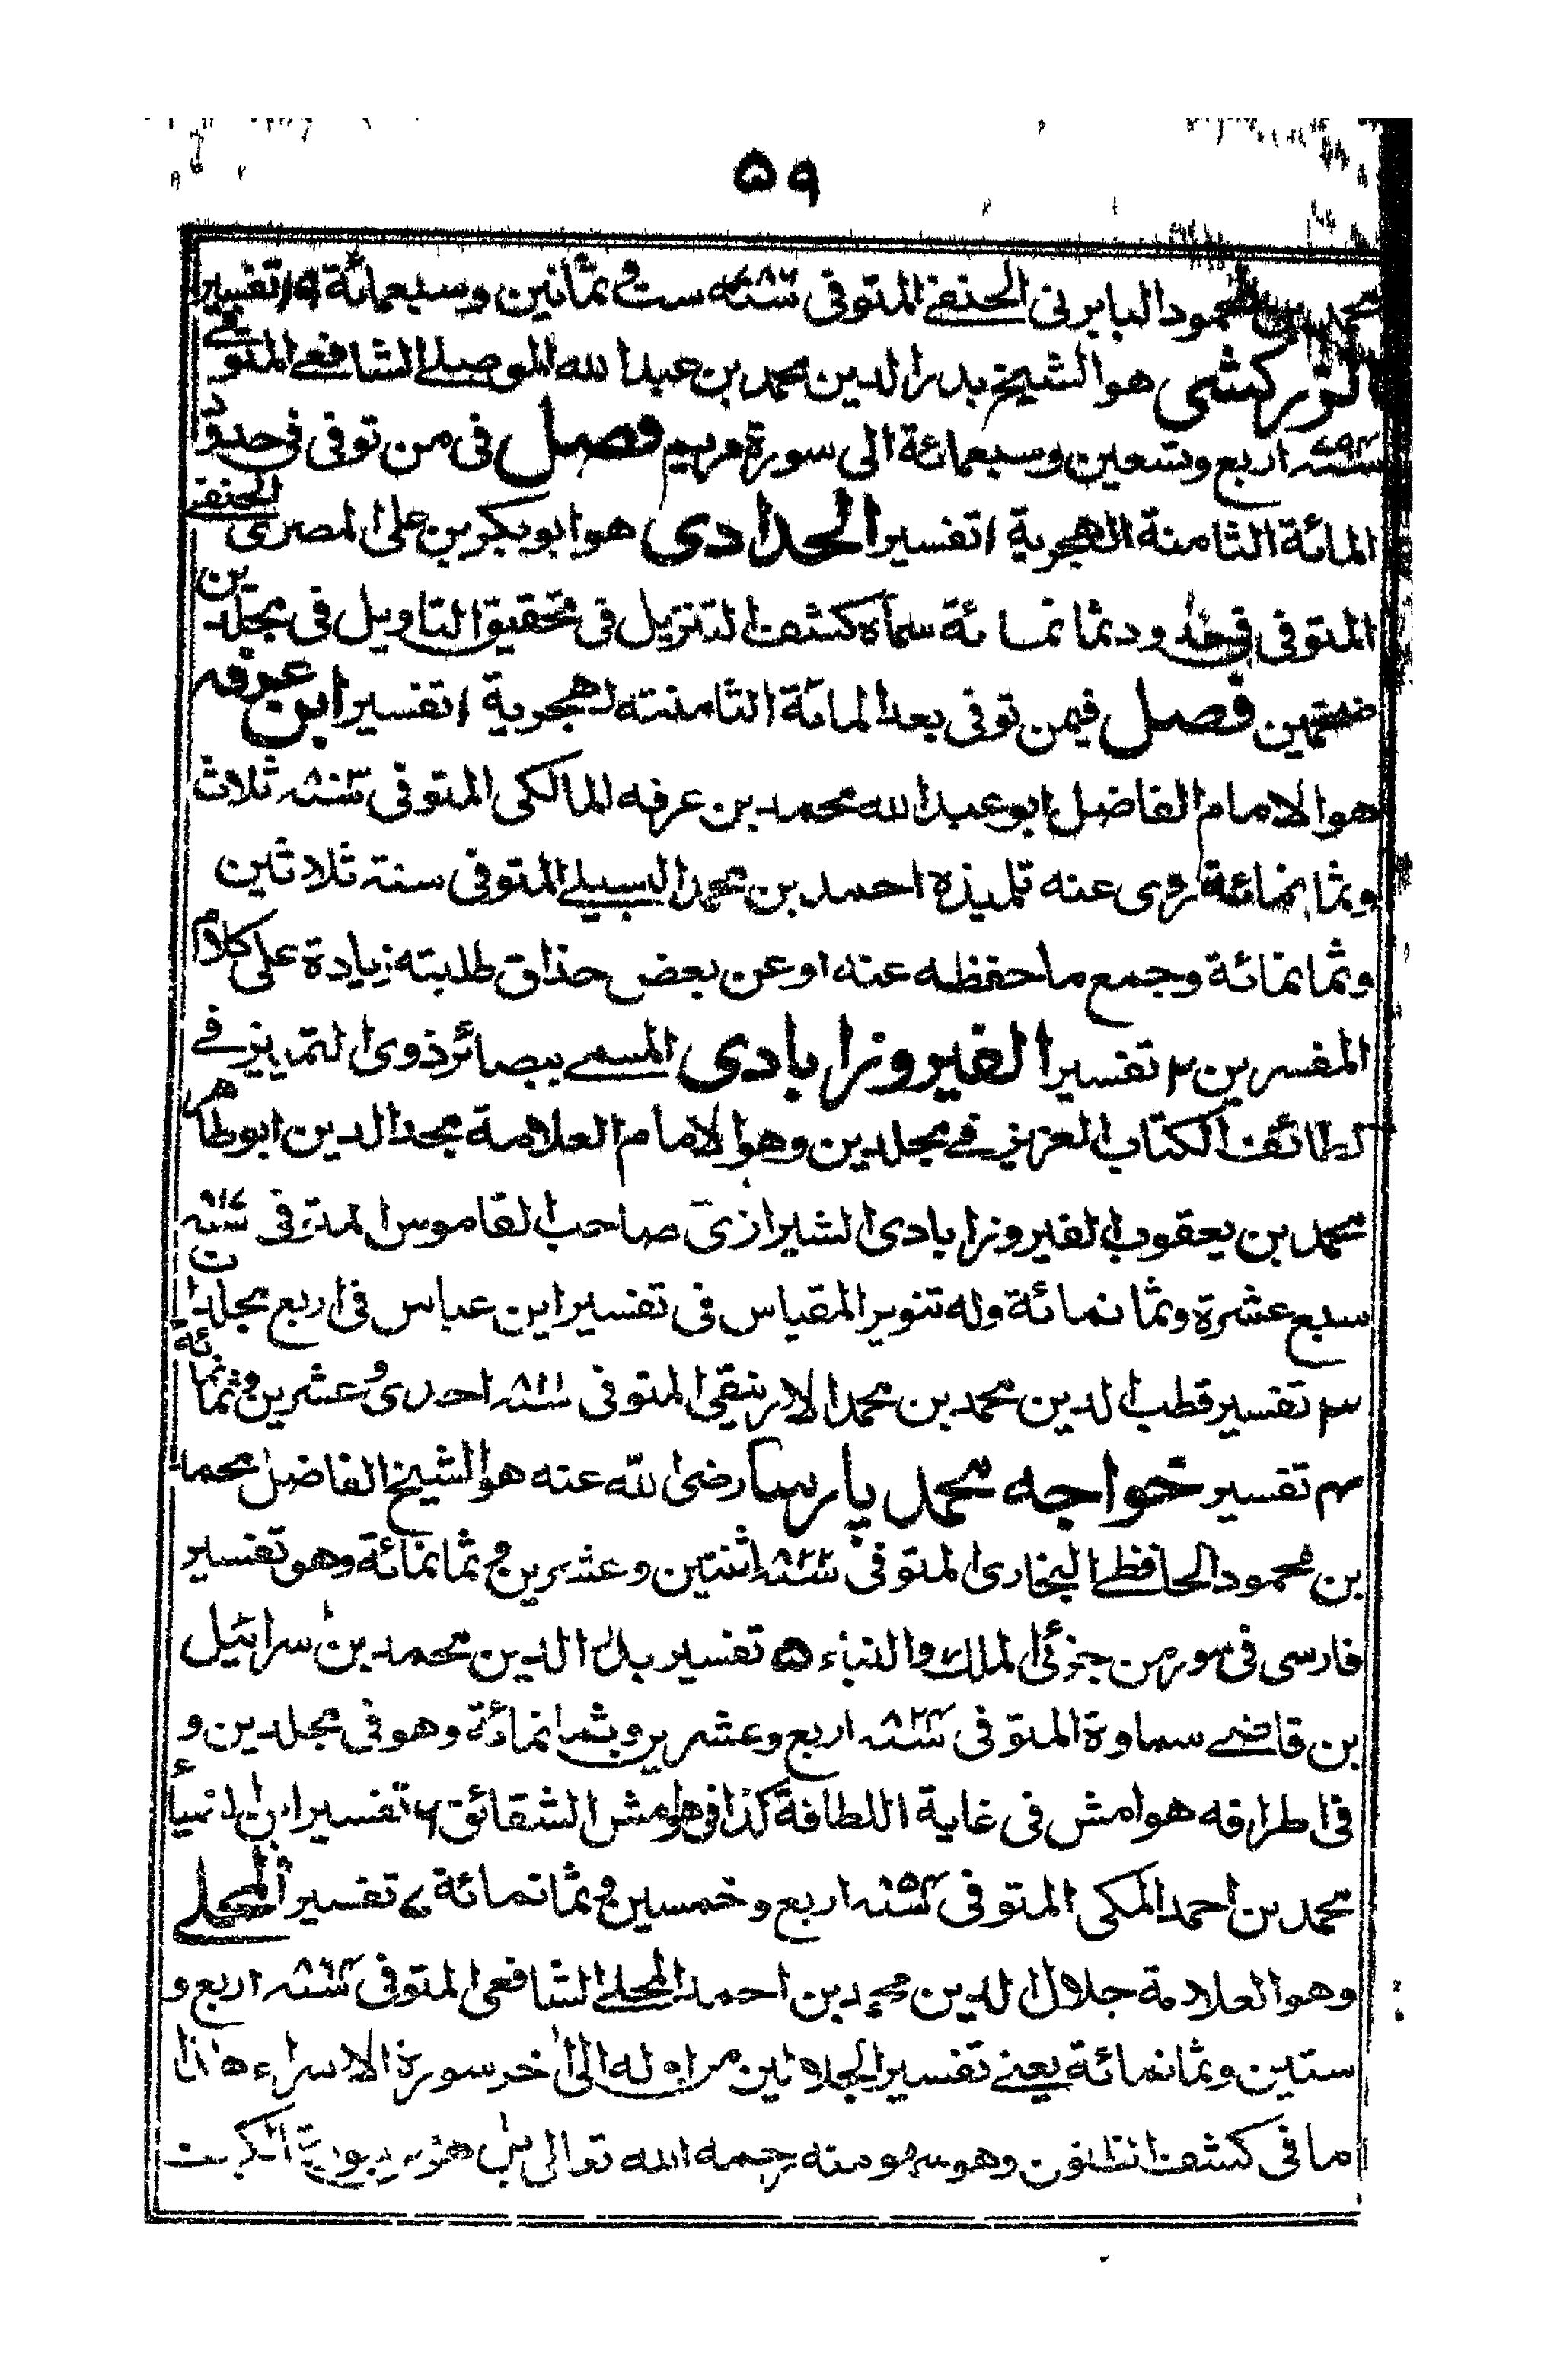 ٥٩
محمد بن محمود البابرتى الحنفے المتوفى سنه ٧٨٦ ست و ثمانين وسبعمائة ١٩ تفسير
الزركشى هو الشيخ بدر الدين محمد بن عبد الله الموصلے الشافعے المتوفے
سنه ٧٩٤ اربع وتسعين وسبعمائة الى سورة مريم فصل فى من توفى فى حدود
المائة الثامنة الهجرية ١ تفسير الحدادى هو ابو بكر بن على المصرى الحنفے
المتوفى فى حدود ثمانمائة سماه كشف التنزيل فى تحقيق التاويل فى مجلدين
ضخمين فصل فيمن توفى بعد المائة الثامنته الهجرية ١ تفسير ابن عرفه
هو الامام الفاضل ابو عبد الله محمد بن عرفه المالكى المتوفى سنه ٨٠٣ ثلاث
وثمانمائة روى عنه تلميذه احمد بن محمد البسيلے المتوفى سنة ثلاثين
وثمانمائة وجمع ما حفظه عنه او عن بعض حذاق طلبته زيادة على كلام
المفسرين ٢ تفسير الفيروزابادى المسمے ببصائر ذوى التمييز فے
لطائف الكتاب العزيز فے مجلدين وهو الامام العلامة مجد الدين ابو طاهر
محمد بن يعقوب الفيروزابادى الشيرازى صاحب القاموس المتوفى سنه ٨١٧
سبع عشرة وثمانمائة وله تنوير المقباس فى تفسير ابن عباس فى اربع مجلدات
٣ تفسير قطب الدين محمد بن محمد الازنيقى المتوفى سنه ٨٢١ احدى وعشرين وثمانمائة
٤ تفسير خواجه محمد پارسا رضى الله عنه هو الشيخ الفاضل محمد
بن محمود الحافظے البخارى المتوفى سنه ٨٢٢ اثنتين وعشرين و ثمانمائة وهو تفسير
فارسى فى سور من جزئى الملك والنبٰاء ٥ تفسير بدر الدين محمد بن اسرائيل
بن قاضے سماوة المتوفى سنه ٨٢٤ اربع وعشرين وثمانمائة وهو فى مجلدين و
فى اطرافه هوامش فى غاية اللطافة كذا فى هوامش الشقائق ٦ تفسير ابن الضياء
محمد بن احمد المكى المتوفى سنه ٨٥٤ اربع و خمسين و ثمانمائة ٧ تفسير المحلے
وهو العلامة جلال الدين محمد بن احمد المحلے الشافعى المتوفى سنه ٨٦٤ اربع و
ستين وثمانمائة يعنے تفسير الجلالين من اوله الى اخر سورة الاسراء هذا
ما فى كشف الظنون وهو سهو منه رحمه الله تعالى بل هو